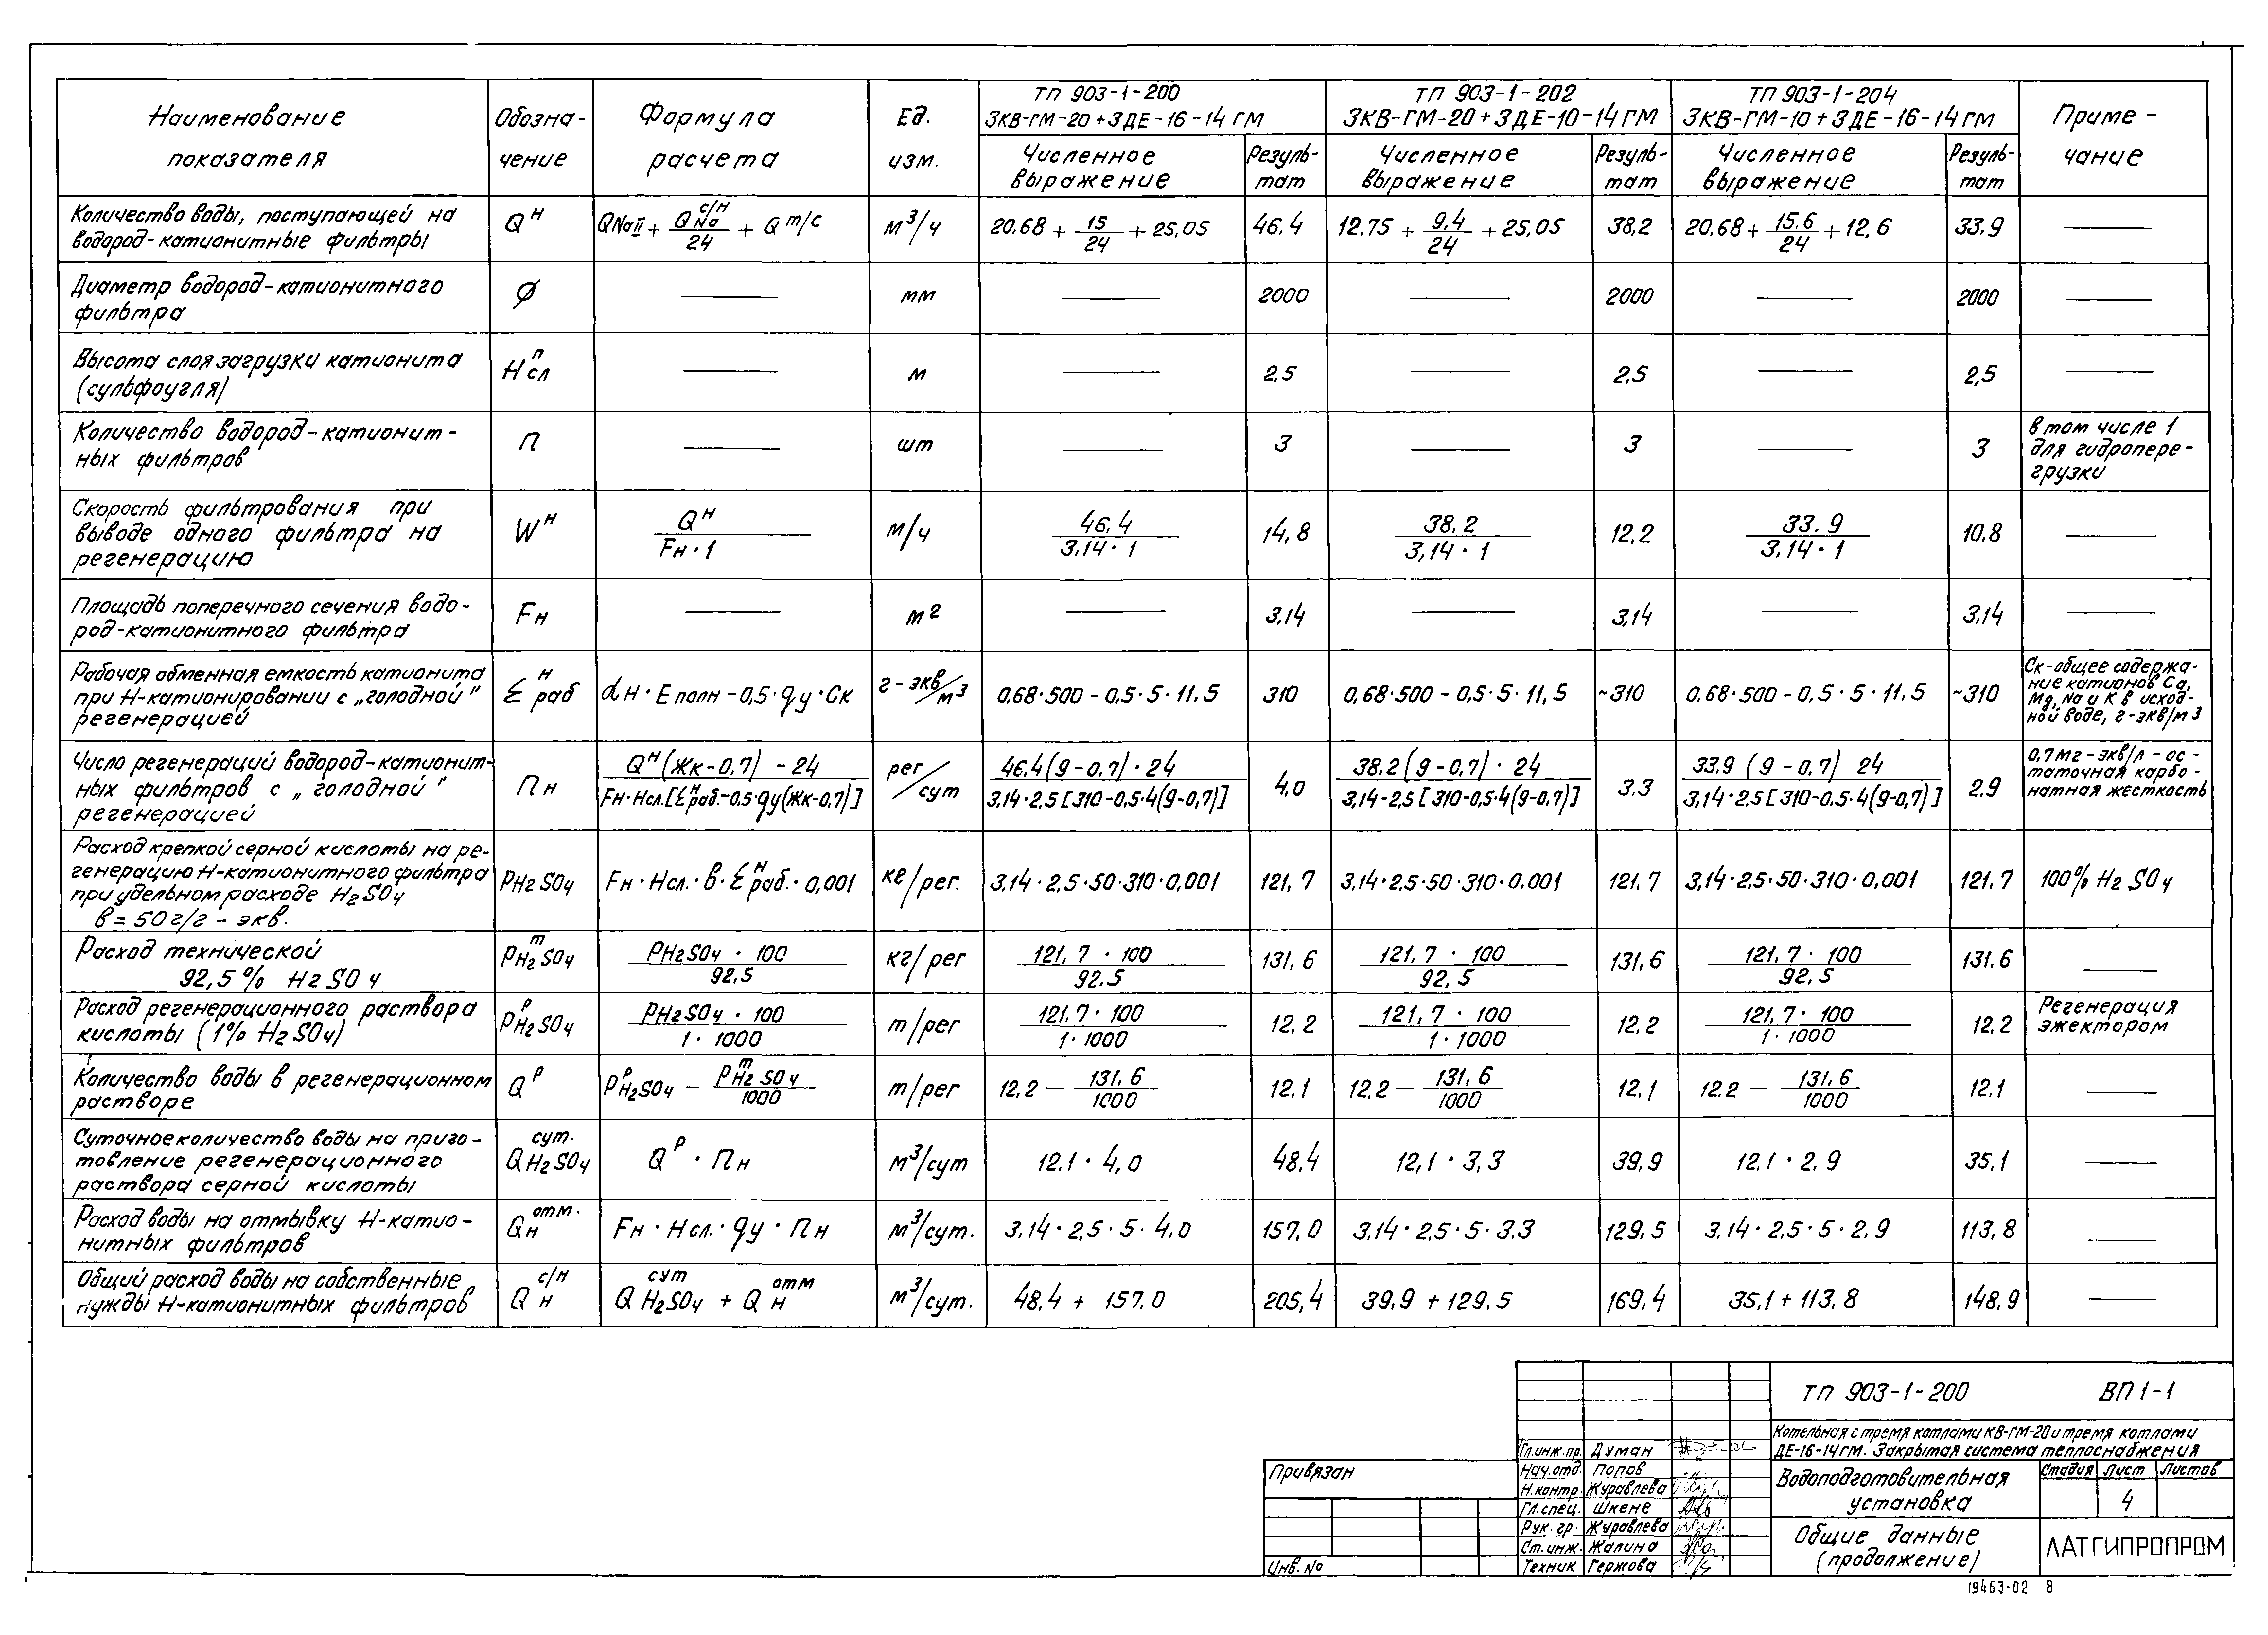 Наименование показателя | Обозна-чение | Формула расчета | Ед. изм. | ТП 903-1-200 3КВ-ГМ-20+3ДЕ-16-14ГМ | ТП 903-1-202 3КВ-ГМ-20+3ДЕ-10-14ГМ | ТП 903-1-204 3КВ-ГМ-10+3ДЕ-16-14ГМ | Приме-чание
Численное выражение | Резуль-тат | Численное выражение | Резуль-тат | Численное выражение | Резуль-тат
Количество воды, поступающей на водород-катионитные фильтры | Q^Н | QNaII + Q^с/н Na / 24 + Q т/с | м³/ч | 20.68 + 15/24 + 25,05 | 46,4 | 12.75 + 9,4/24 + 25,05 | 38,2 | 20,68 + 15,6/24 + 12,6 | 33,9 | —
Диаметр водород-катионитного фильтра | Ø | — | мм | — | 2000 | — | 2000 | — | 2000 | —
Высота слоя загрузки катионита (сульфоугля) | Н^п сл | — | м | — | 2,5 | — | 2,5 | — | 2,5 | —
Количество водород-катионит-ных фильтров | п | — | шт | — | 3 | — | 3 | — | 3 | в том числе 1 для гидропере-грузки
Скорость фильтрования при выводе одного фильтра на регенерацию | W^Н | Q^Н / Fн · 1 | м/ч | 46,4 / 3,14 · 1 | 14,8 | 38,2 / 3,14 · 1 | 12,2 | 33.9 / 3,14 · 1 | 10,8 | —
Площадь поперечного сечения водо-род-катионитного фильтра | Fн | — | м2 | — | 3,14 | — | 3,14 | — | 3,14 | —
Рабочая обменная емкость катионита при Н-катионировании с „голодной" регенерацией | Σ^Н раб | αн · Е полн – 0,5 · qу · Ск | г-экв/м3 | 0,68·500 – 0,5·5·11,5 | 310 | 0,68·500 – 0,5·5·11,5 | ~310 | 0,68·500 – 0,5·5·11,5 | ~310 | Ск-общее содержа-ние катионов Ca, Mg, Na и К в исход-ной воде, г-экв/м3
Число регенераций водород-катионит-ных фильтров с „голодной" регенерацией | Пн | Q^Н(Жк–0,7) – 24 / Fн·Нсл.[Σ^Н раб.–0,5·qу(Жк–0,7)] | рег/сут | 46,4(9–0,7)·24 / 3,14·2,5[310–0,5·4(9–0,7)] | 4,0 | 38,2(9–0,7)·24 / 3,14·2,5[310–0,5·4(9–0,7)] | 3.3 | 33,9(9–0,7) 24 / 3,14·2,5[310–0,5·4(9–0,7)] | 2.9 | 0,7мг-экв/л – ос-таточная карбо-натная жесткость
Расход крепкой серной кислоты на ре-генерацию Н-катионитного фильтра при удельном расходе H2SO4 в = 50 г/г – экв. | PH2SO4 | Fн · Нсл. · в · Σ^Н раб. · 0,001 | кг/рег. | 3,14·2,5·50·310·0,001 | 121,7 | 3,14·2,5·50·310·0,001 | 121,7 | 3,14·2,5·50·310·0,001 | 121.7 | 100% H2SO4
Расход технической 92,5% H2SO4 | P^т H2SO4 | PH2SO4 · 100 / 92,5 | кг/рег | 121,7 · 100 / 92,5 | 131,6 | 121,7 · 100 / 92,5 | 131,6 | 121,7 · 100 / 92,5 | 131.6 | —
Расход регенерационного раствора кислоты (1% H2SO4) | P^р H2SO4 | PH2SO4 · 100 / 1 · 1000 | т/рег | 121,7 · 100 / 1 · 1000 | 12,2 | 121,7 · 100 / 1 · 1000 | 12,2 | 121,7 · 100 / 1 · 1000 | 12,2 | Регенерация эжектором
Количество воды в регенерационном растворе | Q^р | P^р H2SO4 – P^т H2SO4 / 1000 | т/рег | 12,2 – 131,6 / 1000 | 12.1 | 12.2 – 131,6 / 1000 | 12,1 | 12.2 – 131,6 / 1000 | 12.1 | —
Суточное количество воды на приго-товление регенерационного раствора серной кислоты | Q^сут. H2SO4 | Q^р · Пн | м³/сут | 12.1 · 4,0 | 48,4 | 12,1 · 3,3 | 39,9 | 12.1 · 2,9 | 35,1 | —
Расход воды на отмывку Н-катио-нитных фильтров | Q^отм. н | Fн · Нсл. · qу · Пн | м³/сут. | 3,14 · 2,5 · 5 · 4,0 | 157,0 | 3.14 · 2,5 · 5 · 3.3 | 129,5 | 3,14 · 2,5 · 5 · 2,9 | 113,8 | —
Общий расход воды на собственные нужды Н-катионитных фильтров | Q^с/н н | Q^сут H2SO4 + Q^отм н | м³/сут. | 48,4 + 157,0 | 205,4 | 39.9 + 129,5 | 169,4 | 35,1 + 113,8 | 148,9 | —
ТП 903-1-200 ВП1-1
Котельная с тремя котлами КВ-ГМ-20 и тремя котлами
ДЕ-16-14ГМ. Закрытая система теплоснабжения
Гл.инж.пр. Думан
Нач.отд. Попов
Н.контр. Журавлева
Гл.спец. Шкене
Рук.гр. Журавлева
Ст.инж. Жалина
Техник Гержова
Привязан
Инв. №
Водоподготовительная
установка
Стадия Лист Листов
4
Общие данные
(продолжение)
ЛАТГИПРОПРОМ
19463-02 8